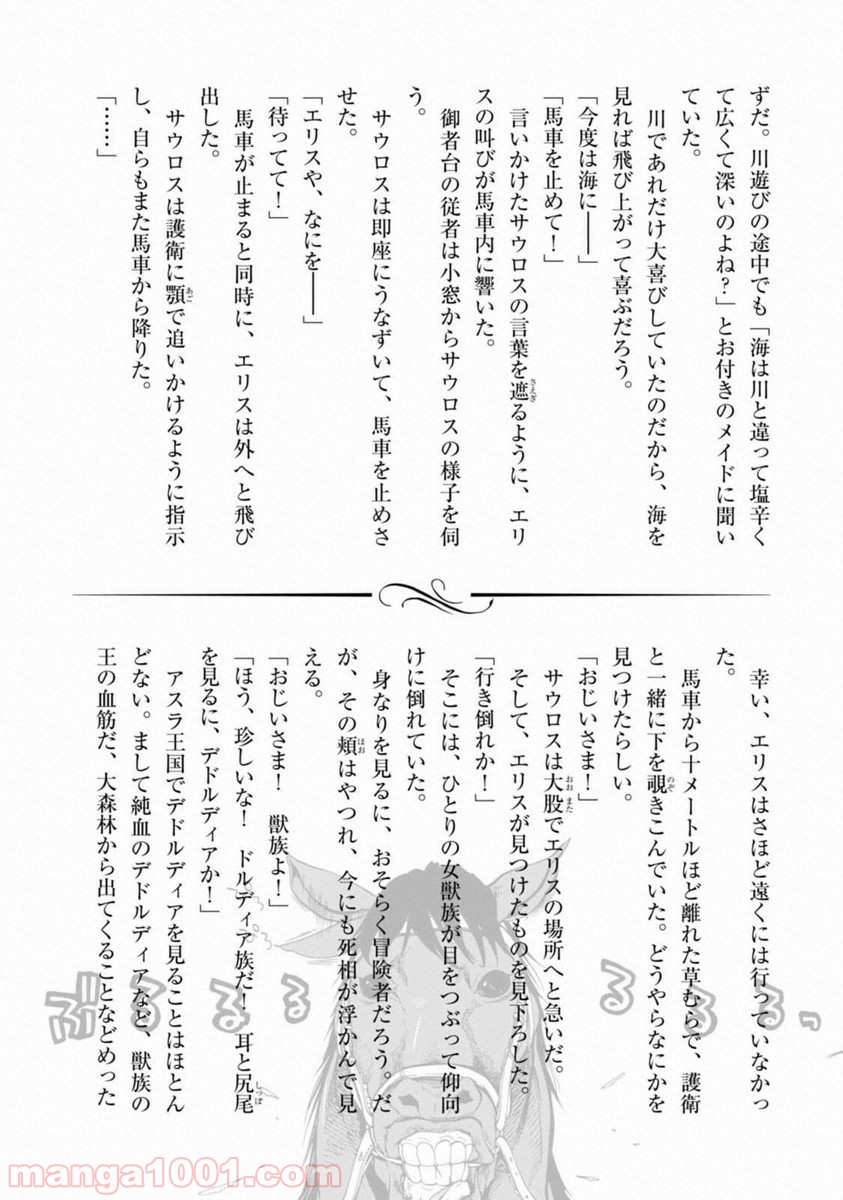 ずだ。川遊びの途中でも「海は川と違って塩辛く
て広くて深いのよね？」とお付きのメイドに聞い
ていた。
川であれだけ大喜びしていたのだから、海を
見れば飛び上がって喜ぶだろう。
「今度は海に――」
「馬車を止めて！」
言いかけたサウロスの言葉を遮るように、エリ
スの叫びが馬車内に響いた。
御者台の従者は小窓からサウロスの様子を伺
う。
サウロスは即座にうなずいて、馬車を止めさ
せた。
「エリスや、なにを――」
「待ってて！」
馬車が止まると同時に、エリスは外へと飛び
出した。
サウロスは護衛に顎で追いかけるように指示
し、自らもまた馬車から降りた。
「……」
幸い、エリスはさほど遠くには行っていなかっ
た。
馬車から十メートルほど離れた草むらで、護衛
と一緒に下を覗きこんでいた。どうやらなにかを
見つけたらしい。
「おじいさま！」
サウロスは大股でエリスの場所へと急いだ。
そして、エリスが見つけたものを見下ろした。
「行き倒れか！」
そこには、ひとりの女獣族が目をつぶって仰向
けに倒れていた。
身なりを見るに、おそらく冒険者だろう。だ
が、その頬はやつれ、今にも死相が浮かんで見
える。
「おじいさま！　獣族よ！」
「ほう、珍しいな！　ドルディア族だ！　耳と尻尾
を見るに、デドルディアか！」
アスラ王国でデドルディアを見ることはほとん
どない。まして純血のデドルディアなど、獣族の
王の血筋だ、大森林から出てくることなどめった
ぶるるるるるっ
manga1001.com